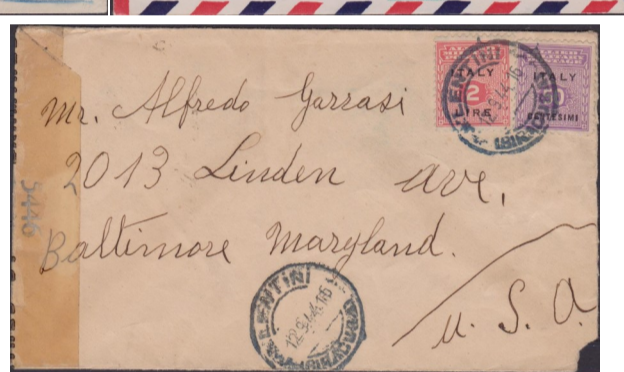 ITALY
2
LIRE
ITALY
CENTESIMI
LENTINI
12.9.44.16
Mr. Alfredo Garrasi
2013 Linden ave,
Baltimore Maryland.
U. S. A.
5446
LENTINI
12.9.44.16